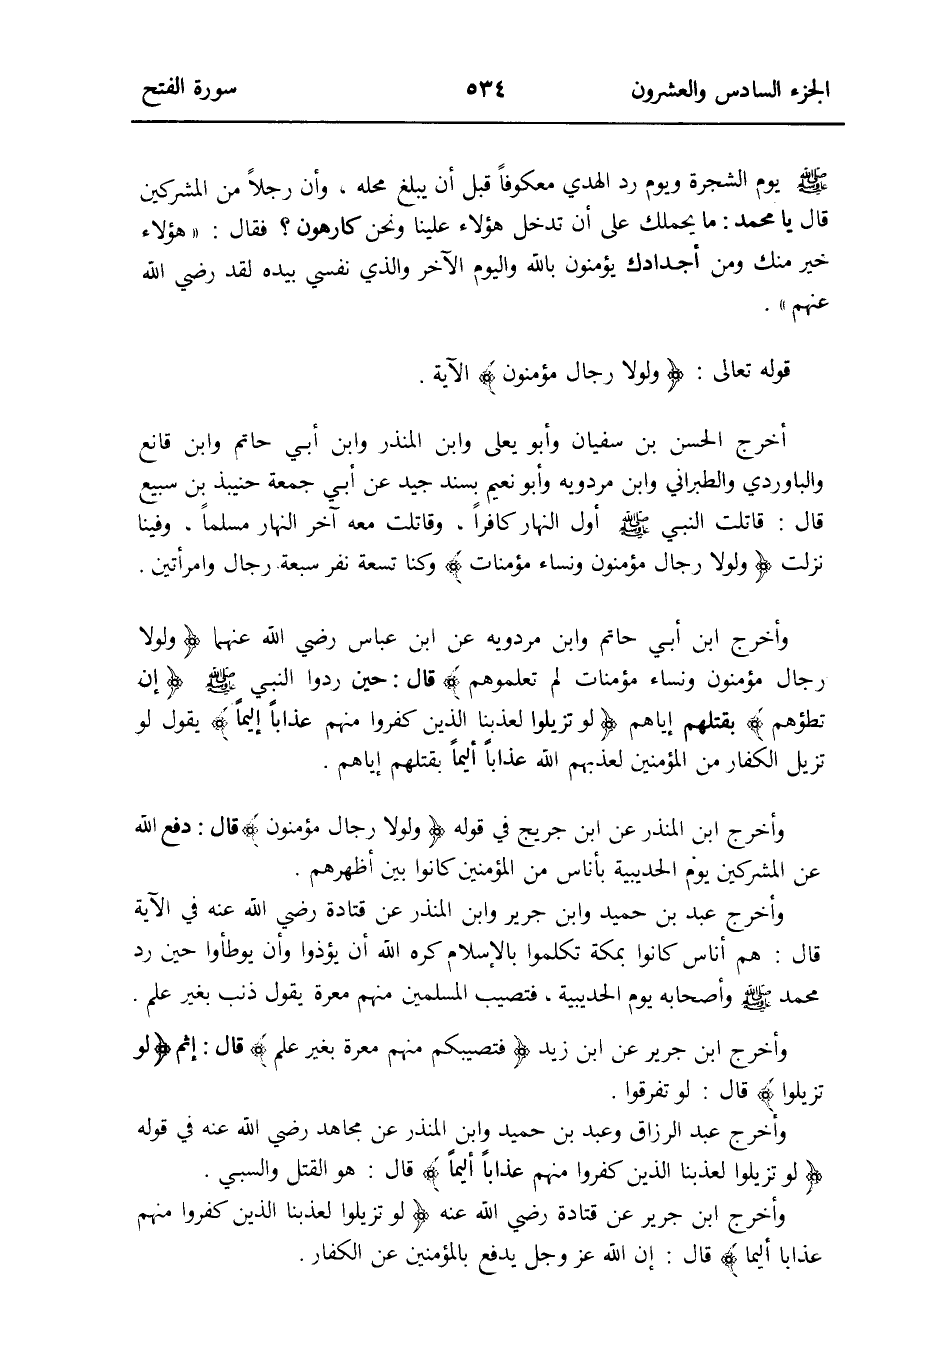 الجزء السادس والعشرون ٥٣٤ سورة الفتح
ﷺ يوم الشجرة ويوم رد الهدي معكوفاً قبل أن يبلغ محله ، وأن رجلاً من المشركين
قال يا محمد : ما يحملك على أن تدخل هؤلاء علينا ونحن كارهون ؟ فقال : « هؤلاء
خير منك ومن أجدادك يؤمنون بالله واليوم الآخر والذي نفسي بيده لقد رضي الله
عنهم » .
قوله تعالى : ﴿ ولولا رجال مؤمنون ﴾ الآية .
أخرج الحسن بن سفيان وأبو يعلى وابن المنذر وابن أبي حاتم وابن قانع
والباوردي والطبراني وابن مردويه وأبو نعيم بسند جيد عن أبي جمعة حنيبذ بن سبيع
قال : قاتلت النبي ﷺ أول النهار كافراً . وقاتلت معه آخر النهار مسلماً . وفينا
نزلت ﴿ ولولا رجال مؤمنون ونساء مؤمنات ﴾ وكنا تسعة نفر سبعة رجال وامرأتين .
وأخرج ابن أبي حاتم وابن مردويه عن ابن عباس رضي الله عنهما ﴿ ولولا
رجال مؤمنون ونساء مؤمنات لم تعلموهم ﴾ قال : حين ردوا النبي ﷺ ﴿ إن
تطؤهم ﴾ بقتلهم إياهم ﴿ لو تزيلوا لعذبنا الذين كفروا منهم عذاباً إليماً ﴾ يقول لو
تزيل الكفار من المؤمنين لعذبهم الله عذاباً أليماً بقتلهم إياهم .
وأخرج ابن المنذر عن ابن جريج في قوله ﴿ ولولا رجال مؤمنون ﴾ قال : دفع الله
عن المشركين يوم الحديبية بأناس من المؤمنين كانوا بين أظهرهم .
وأخرج عبد بن حميد وابن جرير وابن المنذر عن قتادة رضي الله عنه في الآية
قال : هم أناس كانوا بمكة تكلموا بالإسلام كره الله أن يؤذوا وأن يوطأوا حين رد
محمد ﷺ وأصحابه يوم الحديبية ، فتصيب المسلمين منهم معرة يقول ذنب بغير علم .
وأخرج ابن جرير عن ابن زيد ﴿ فتصيبكم منهم معرة بغير علم ﴾ قال : إثم ﴿ لو
تزيلوا ﴾ قال : لو تفرقوا .
وأخرج عبد الرزاق وعبد بن حميد وابن المنذر عن مجاهد رضي الله عنه في قوله
﴿ لو تزيلوا لعذبنا الذين كفروا منهم عذاباً أليماً ﴾ قال : هو القتل والسبي .
وأخرج ابن جرير عن قتادة رضي الله عنه ﴿ لو تزيلوا لعذبنا الذين كفروا منهم
عذابا أليما ﴾ قال : إن الله عز وجل يدفع بالمؤمنين عن الكفار .